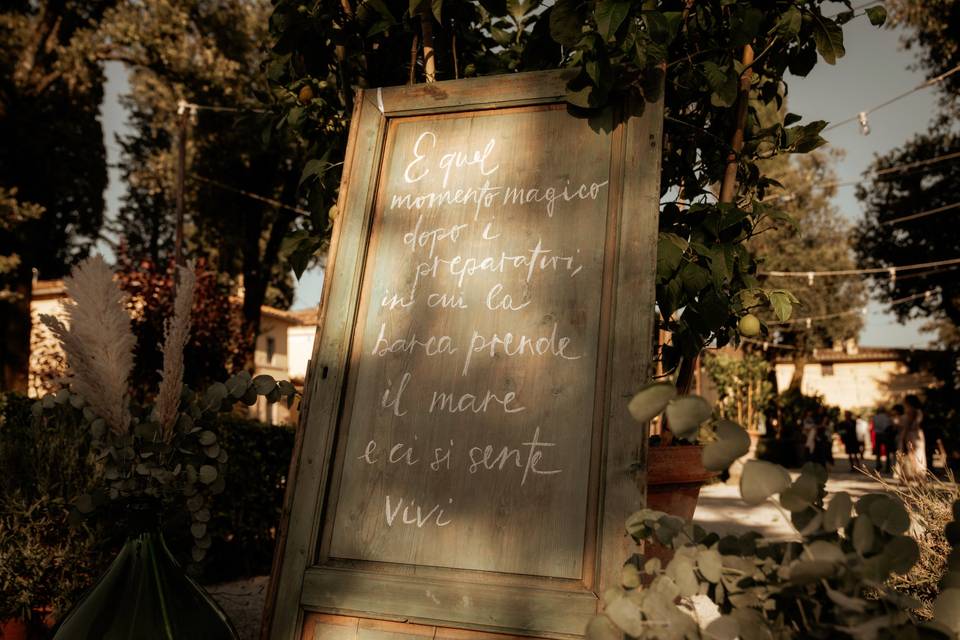 E quel
momento magico
dopo i
preparativi,
in cui la
barca prende
il mare
e ci si sente
vivi